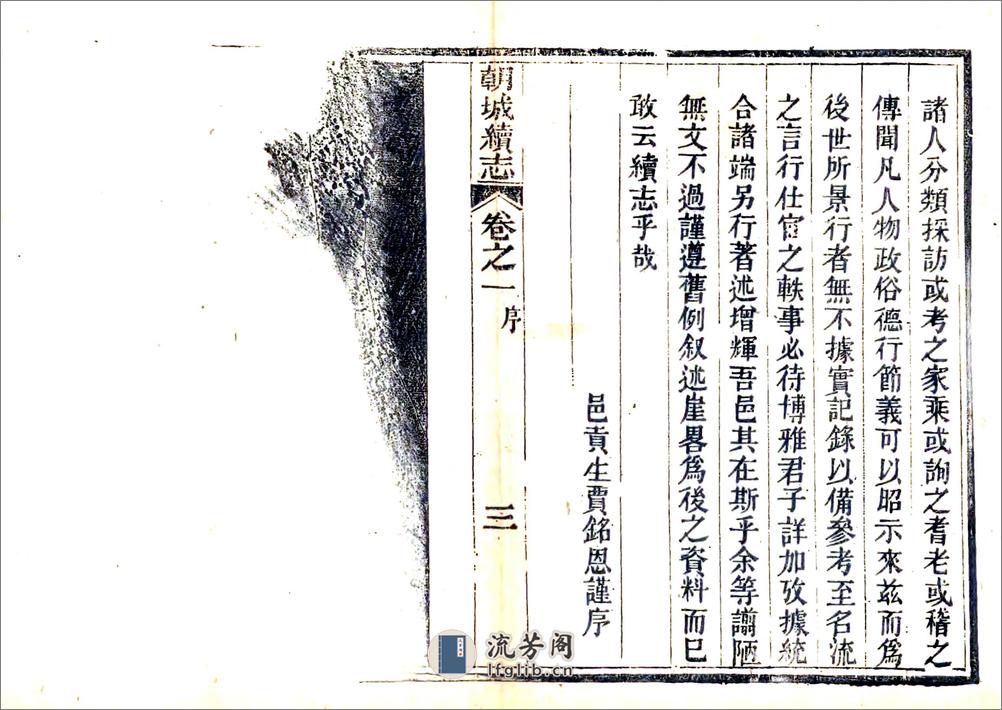 諸人分類採訪或考之家乘或詢之耆老或稽之
傳聞凡人物政俗德行節義可以昭示來茲而爲
後世所景行者無不據實記錄以備參考至名流
之言行仕宦之軼事必待博雅君子詳加攷據統
合諸端另行著述增輝吾邑其在斯乎余等謭陋
無文不過謹遵舊例叙述崖畧爲後之資料而已
敢云續志乎哉
邑貢生賈銘恩謹序
朝城續志
卷之一
序
三
流芳阁
lfglib.cn